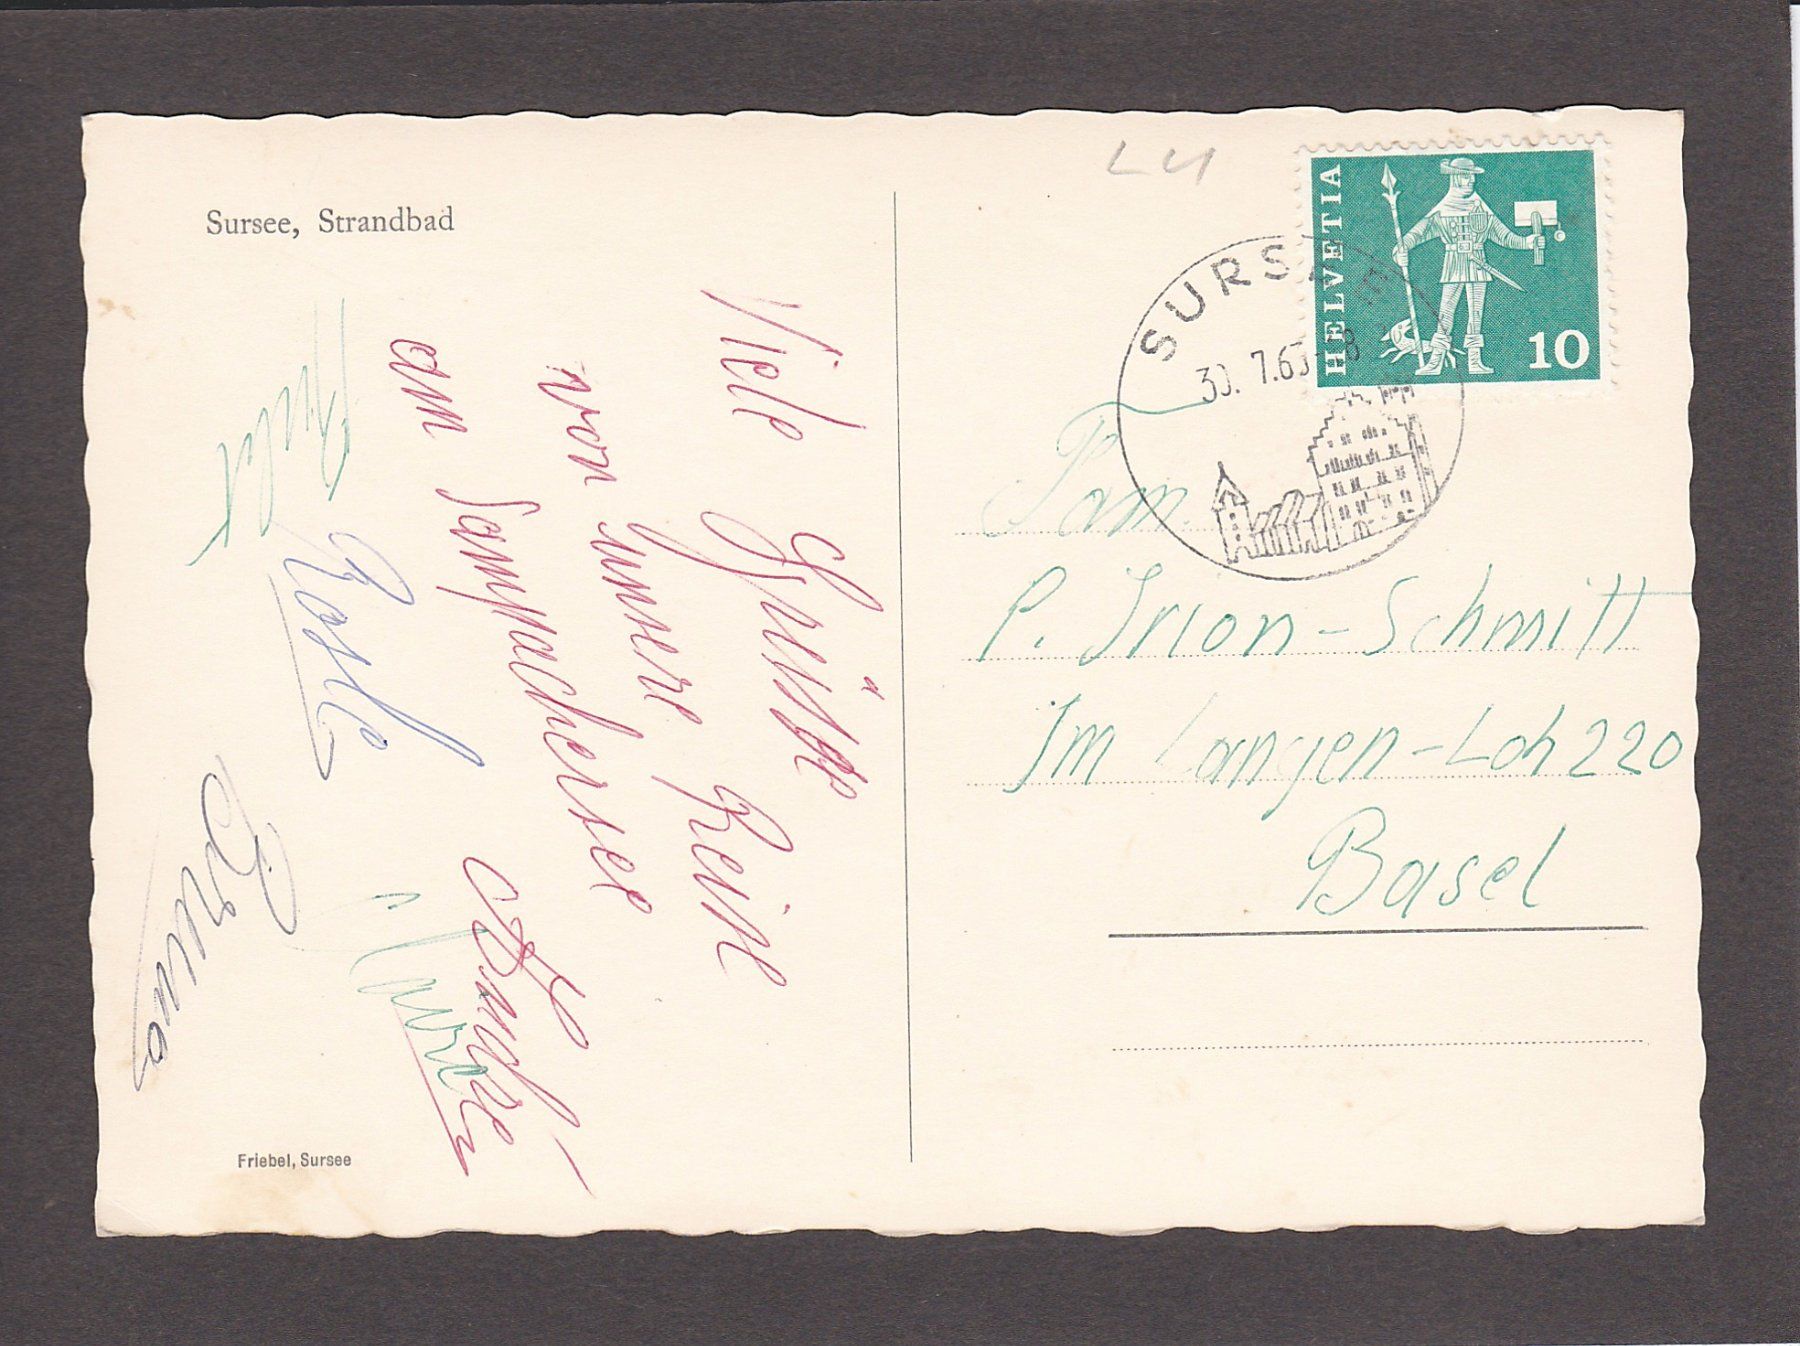 Sursee, Strandbad
Viele Grüsse
von unsere Reise
am Sempachersee
Rösle
Bruno
Friebel, Sursee
LU
HELVETIA
10
SURSEE
30. 7.63
Fam.
P. Irion-Schmitt
Im Langen-Loh 220
Basel